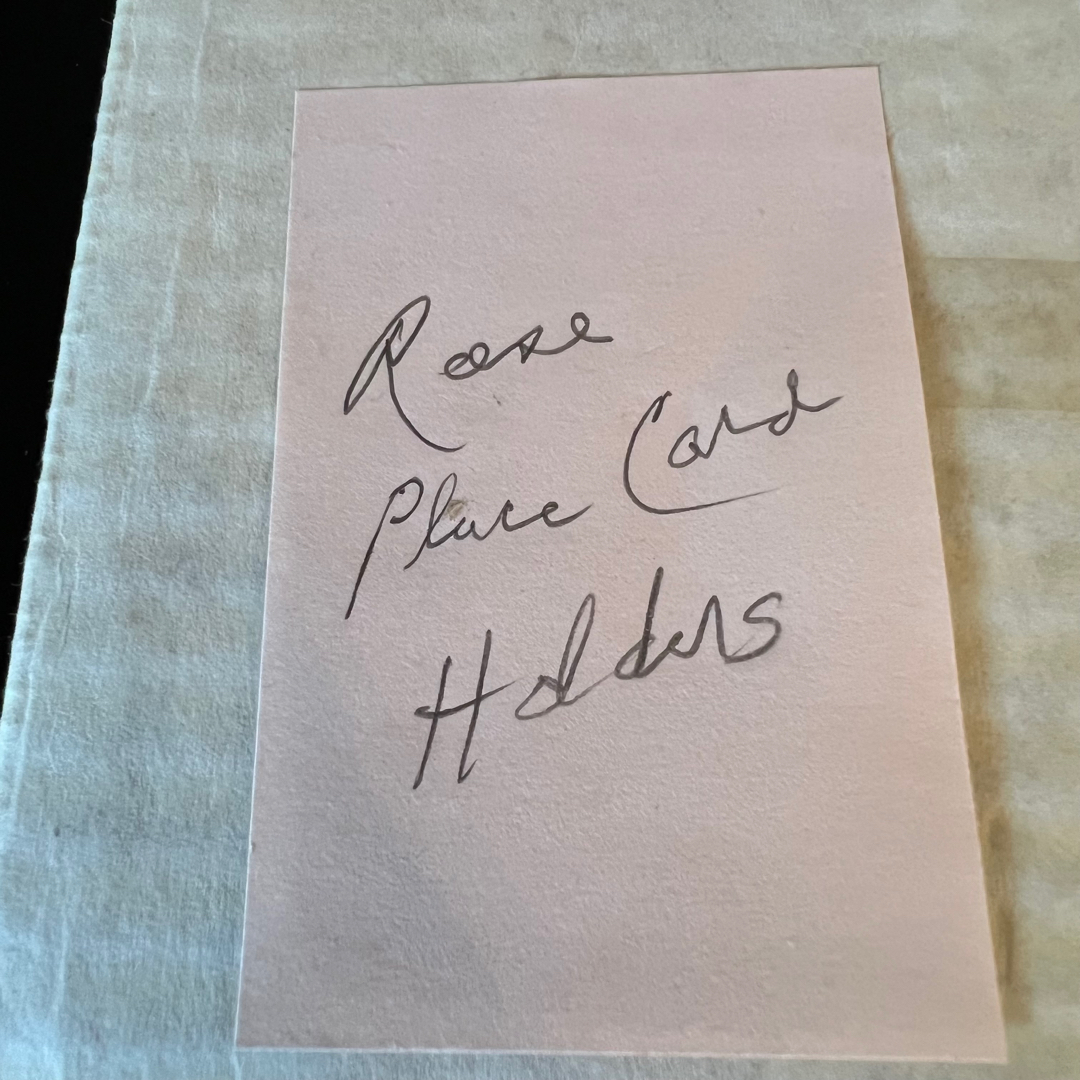 Rose
Place Card
Holders